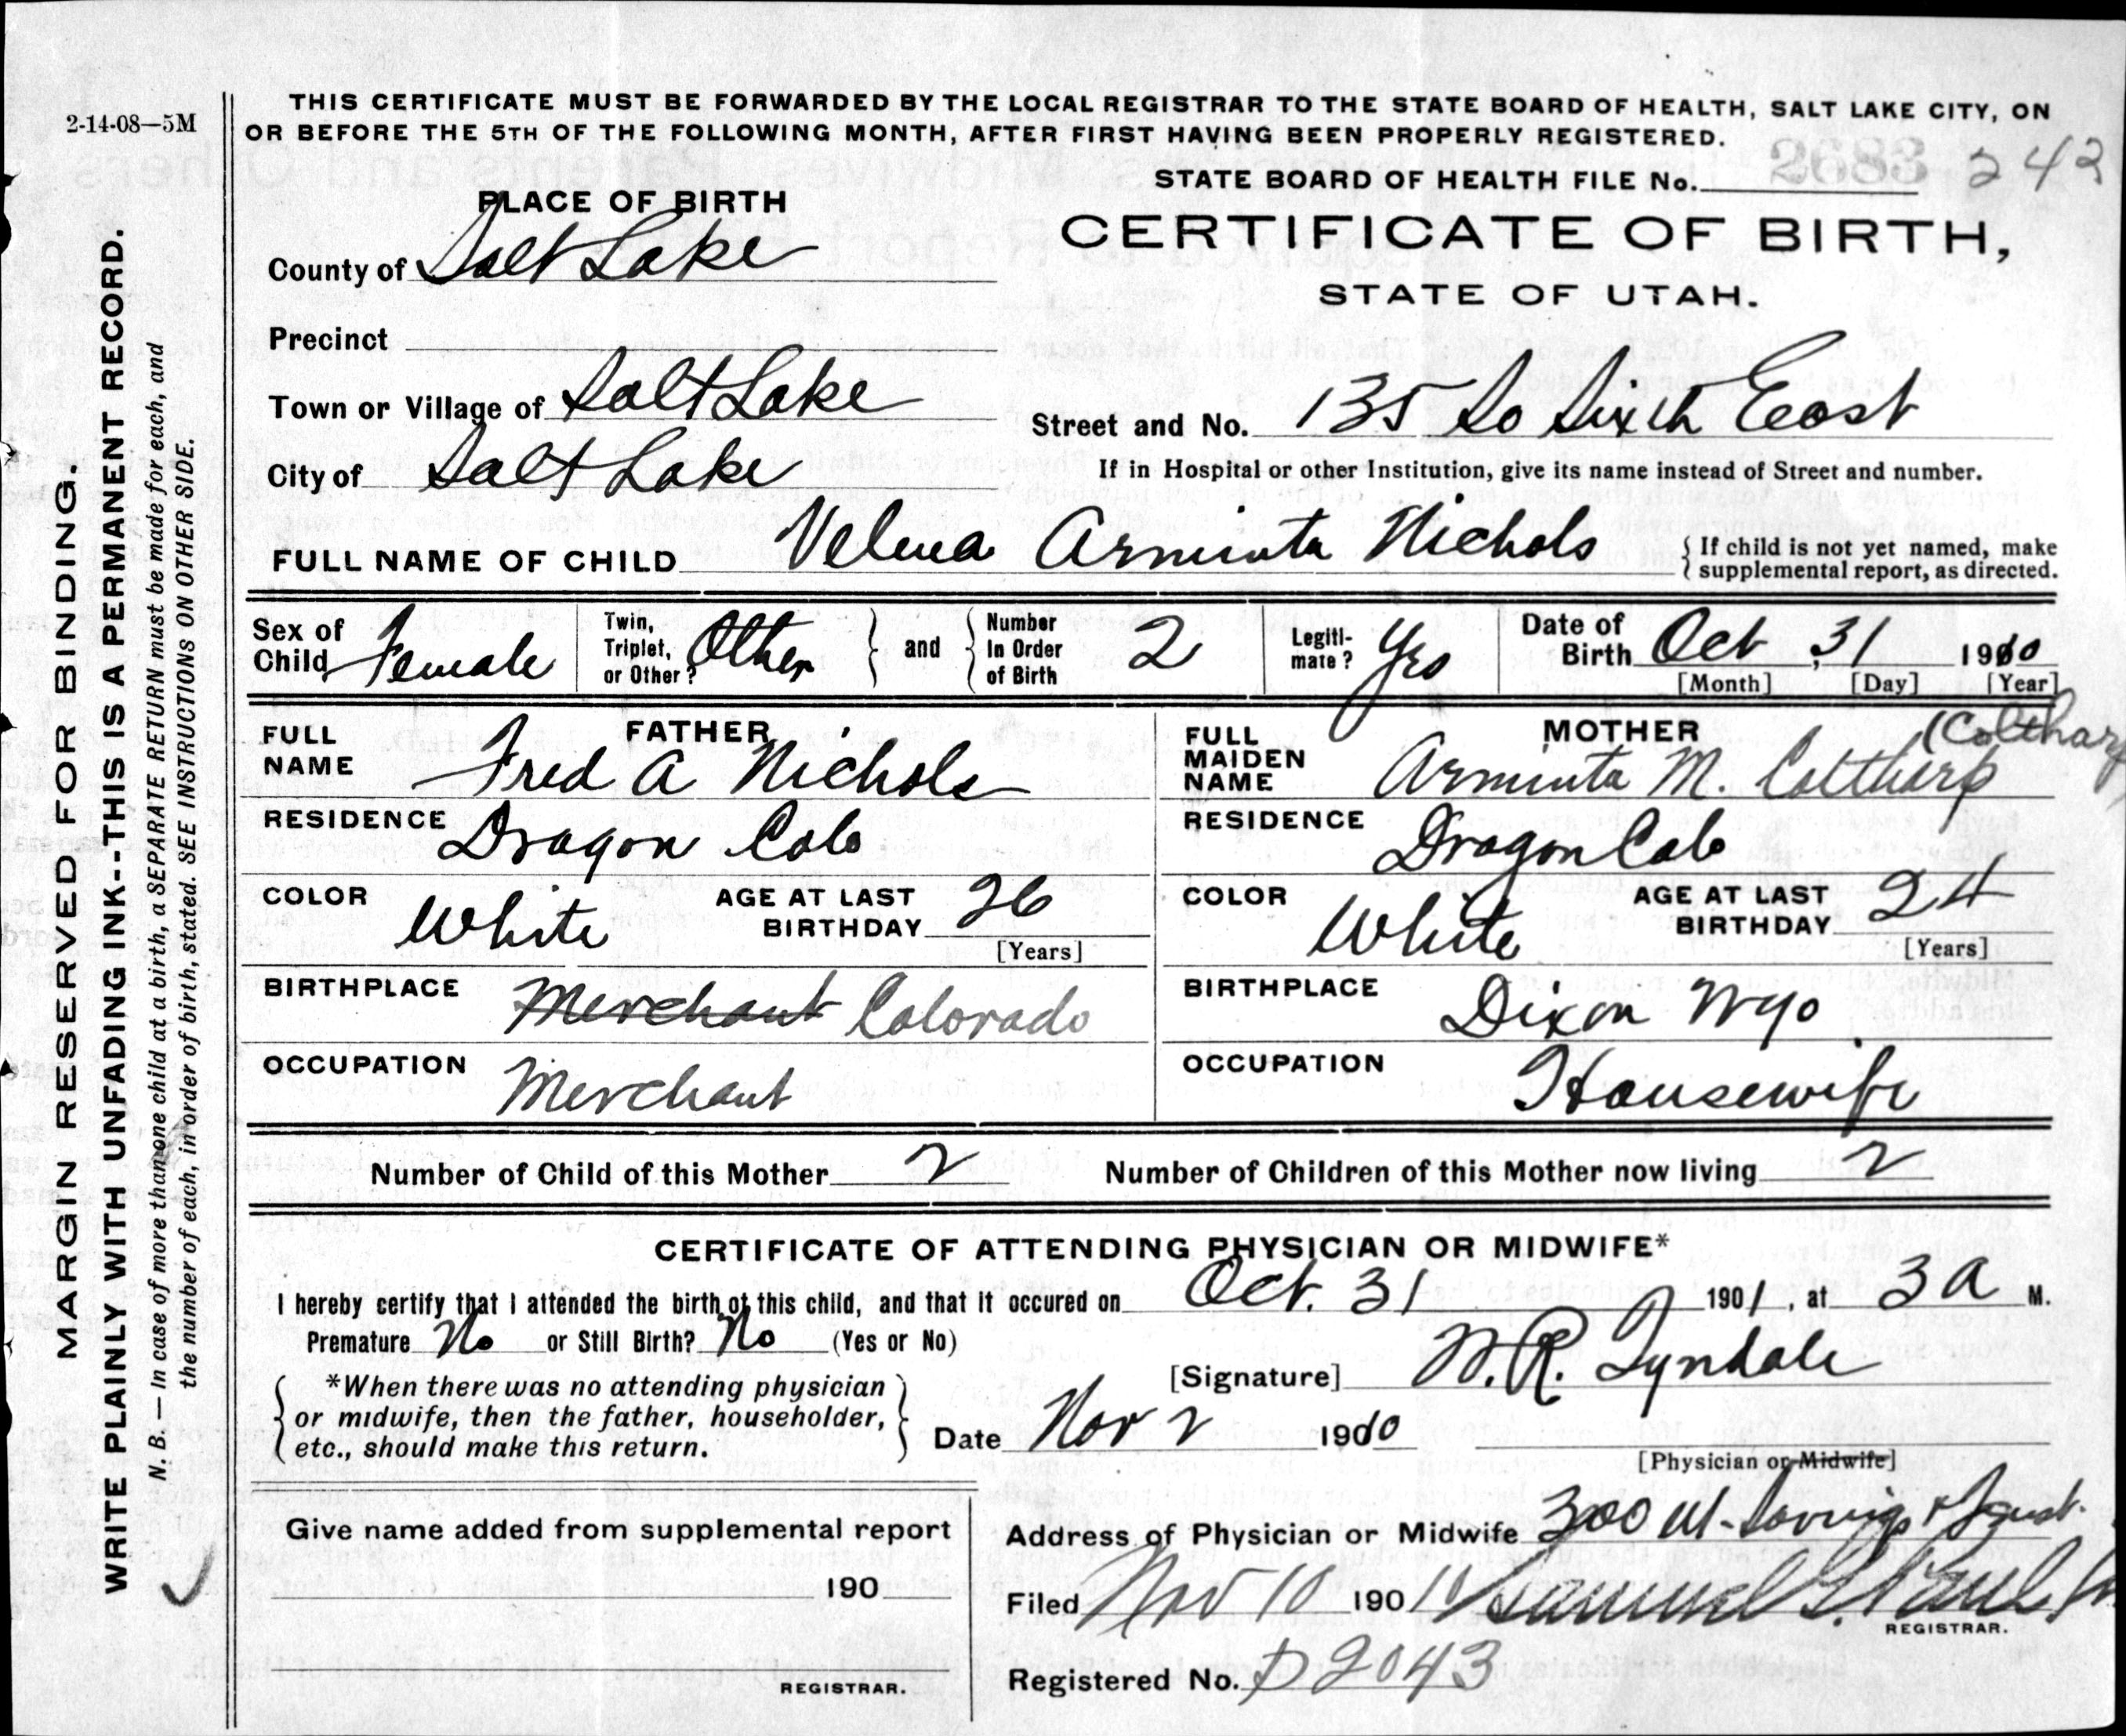 2-14-08—5M
THIS CERTIFICATE MUST BE FORWARDED BY THE LOCAL REGISTRAR TO THE STATE BOARD OF HEALTH, SALT LAKE CITY, ON
OR BEFORE THE 5TH OF THE FOLLOWING MONTH, AFTER FIRST HAVING BEEN PROPERLY REGISTERED.
STATE BOARD OF HEALTH FILE No. 2683 242
PLACE OF BIRTH
CERTIFICATE OF BIRTH,
STATE OF UTAH.
County of Salt Lake
Precinct
Town or Village of Salt Lake
Street and No. 135 So Sixth East
City of Salt Lake
If in Hospital or other Institution, give its name instead of Street and number.
FULL NAME OF CHILD Velma Arminta Nichols
{ If child is not yet named, make
supplemental report, as directed.
Sex of Child Female
Twin, Triplet, or Other? Other } and { Number In Order of Birth 2
Legiti-mate? Yes
Date of Birth Oct 31 1910
[Month] [Day] [Year]
FATHER
FULL NAME Fred A Nichols
RESIDENCE Dragon Colo
COLOR White AGE AT LAST BIRTHDAY 26
[Years]
BIRTHPLACE Merchant Colorado
OCCUPATION Merchant
MOTHER (Coltharp
FULL MAIDEN NAME Arminta M. Coltharp
RESIDENCE Dragon Colo
COLOR White AGE AT LAST BIRTHDAY 24
[Years]
BIRTHPLACE Dixon Wyo
OCCUPATION Housewife
Number of Child of this Mother 2 Number of Children of this Mother now living 2
CERTIFICATE OF ATTENDING PHYSICIAN OR MIDWIFE*
I hereby certify that I attended the birth of this child, and that it occured on Oct. 31 1901, at 3 A M.
Premature No or Still Birth? No (Yes or No)
[Signature] W. R. Tyndale
{ *When there was no attending physician
or midwife, then the father, householder,
etc., should make this return. }
Date Nov 2 1910
[Physician or Midwife]
Give name added from supplemental report
190
REGISTRAR.
Address of Physician or Midwife 300 Ut. Savings & Trust.
Filed Nov 10 190 10 Samuel G. Paul
REGISTRAR.
Registered No. D2043
MARGIN RESERVED FOR BINDING.
WRITE PLAINLY WITH UNFADING INK--THIS IS A PERMANENT RECORD.
N. B. — In case of more than one child at a birth, a SEPARATE RETURN must be made for each, and
the number of each, in order of birth, stated. SEE INSTRUCTIONS ON OTHER SIDE.